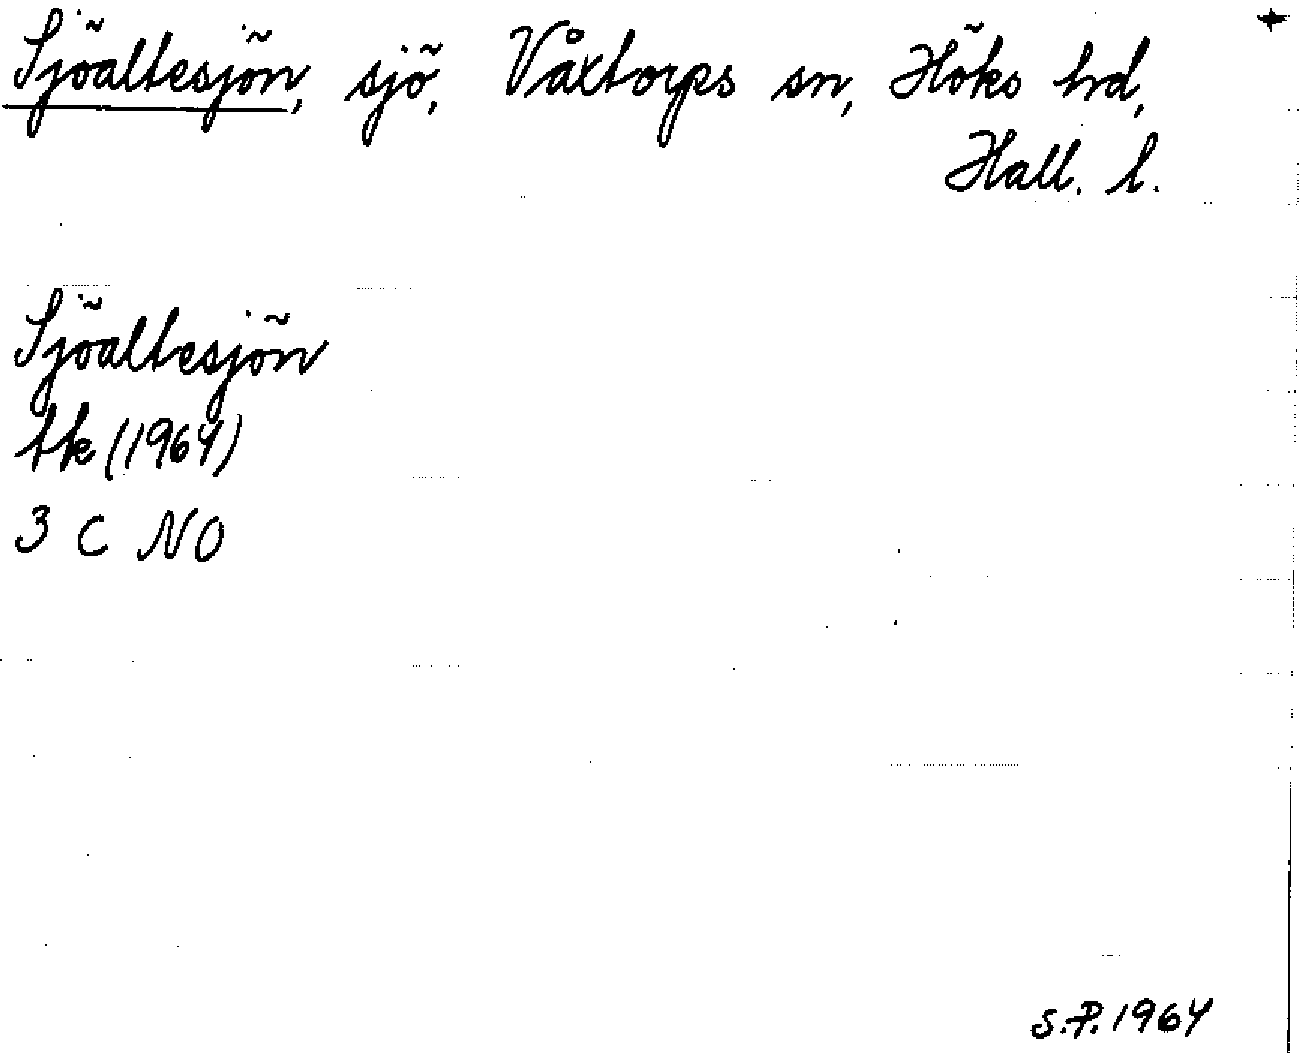 Sjöaltesjön, sjö, Våxtorps sn, Höks hd,
Hall. l.
Sjöaltesjön
tk (1964)
3 C NO
S.P. 1964